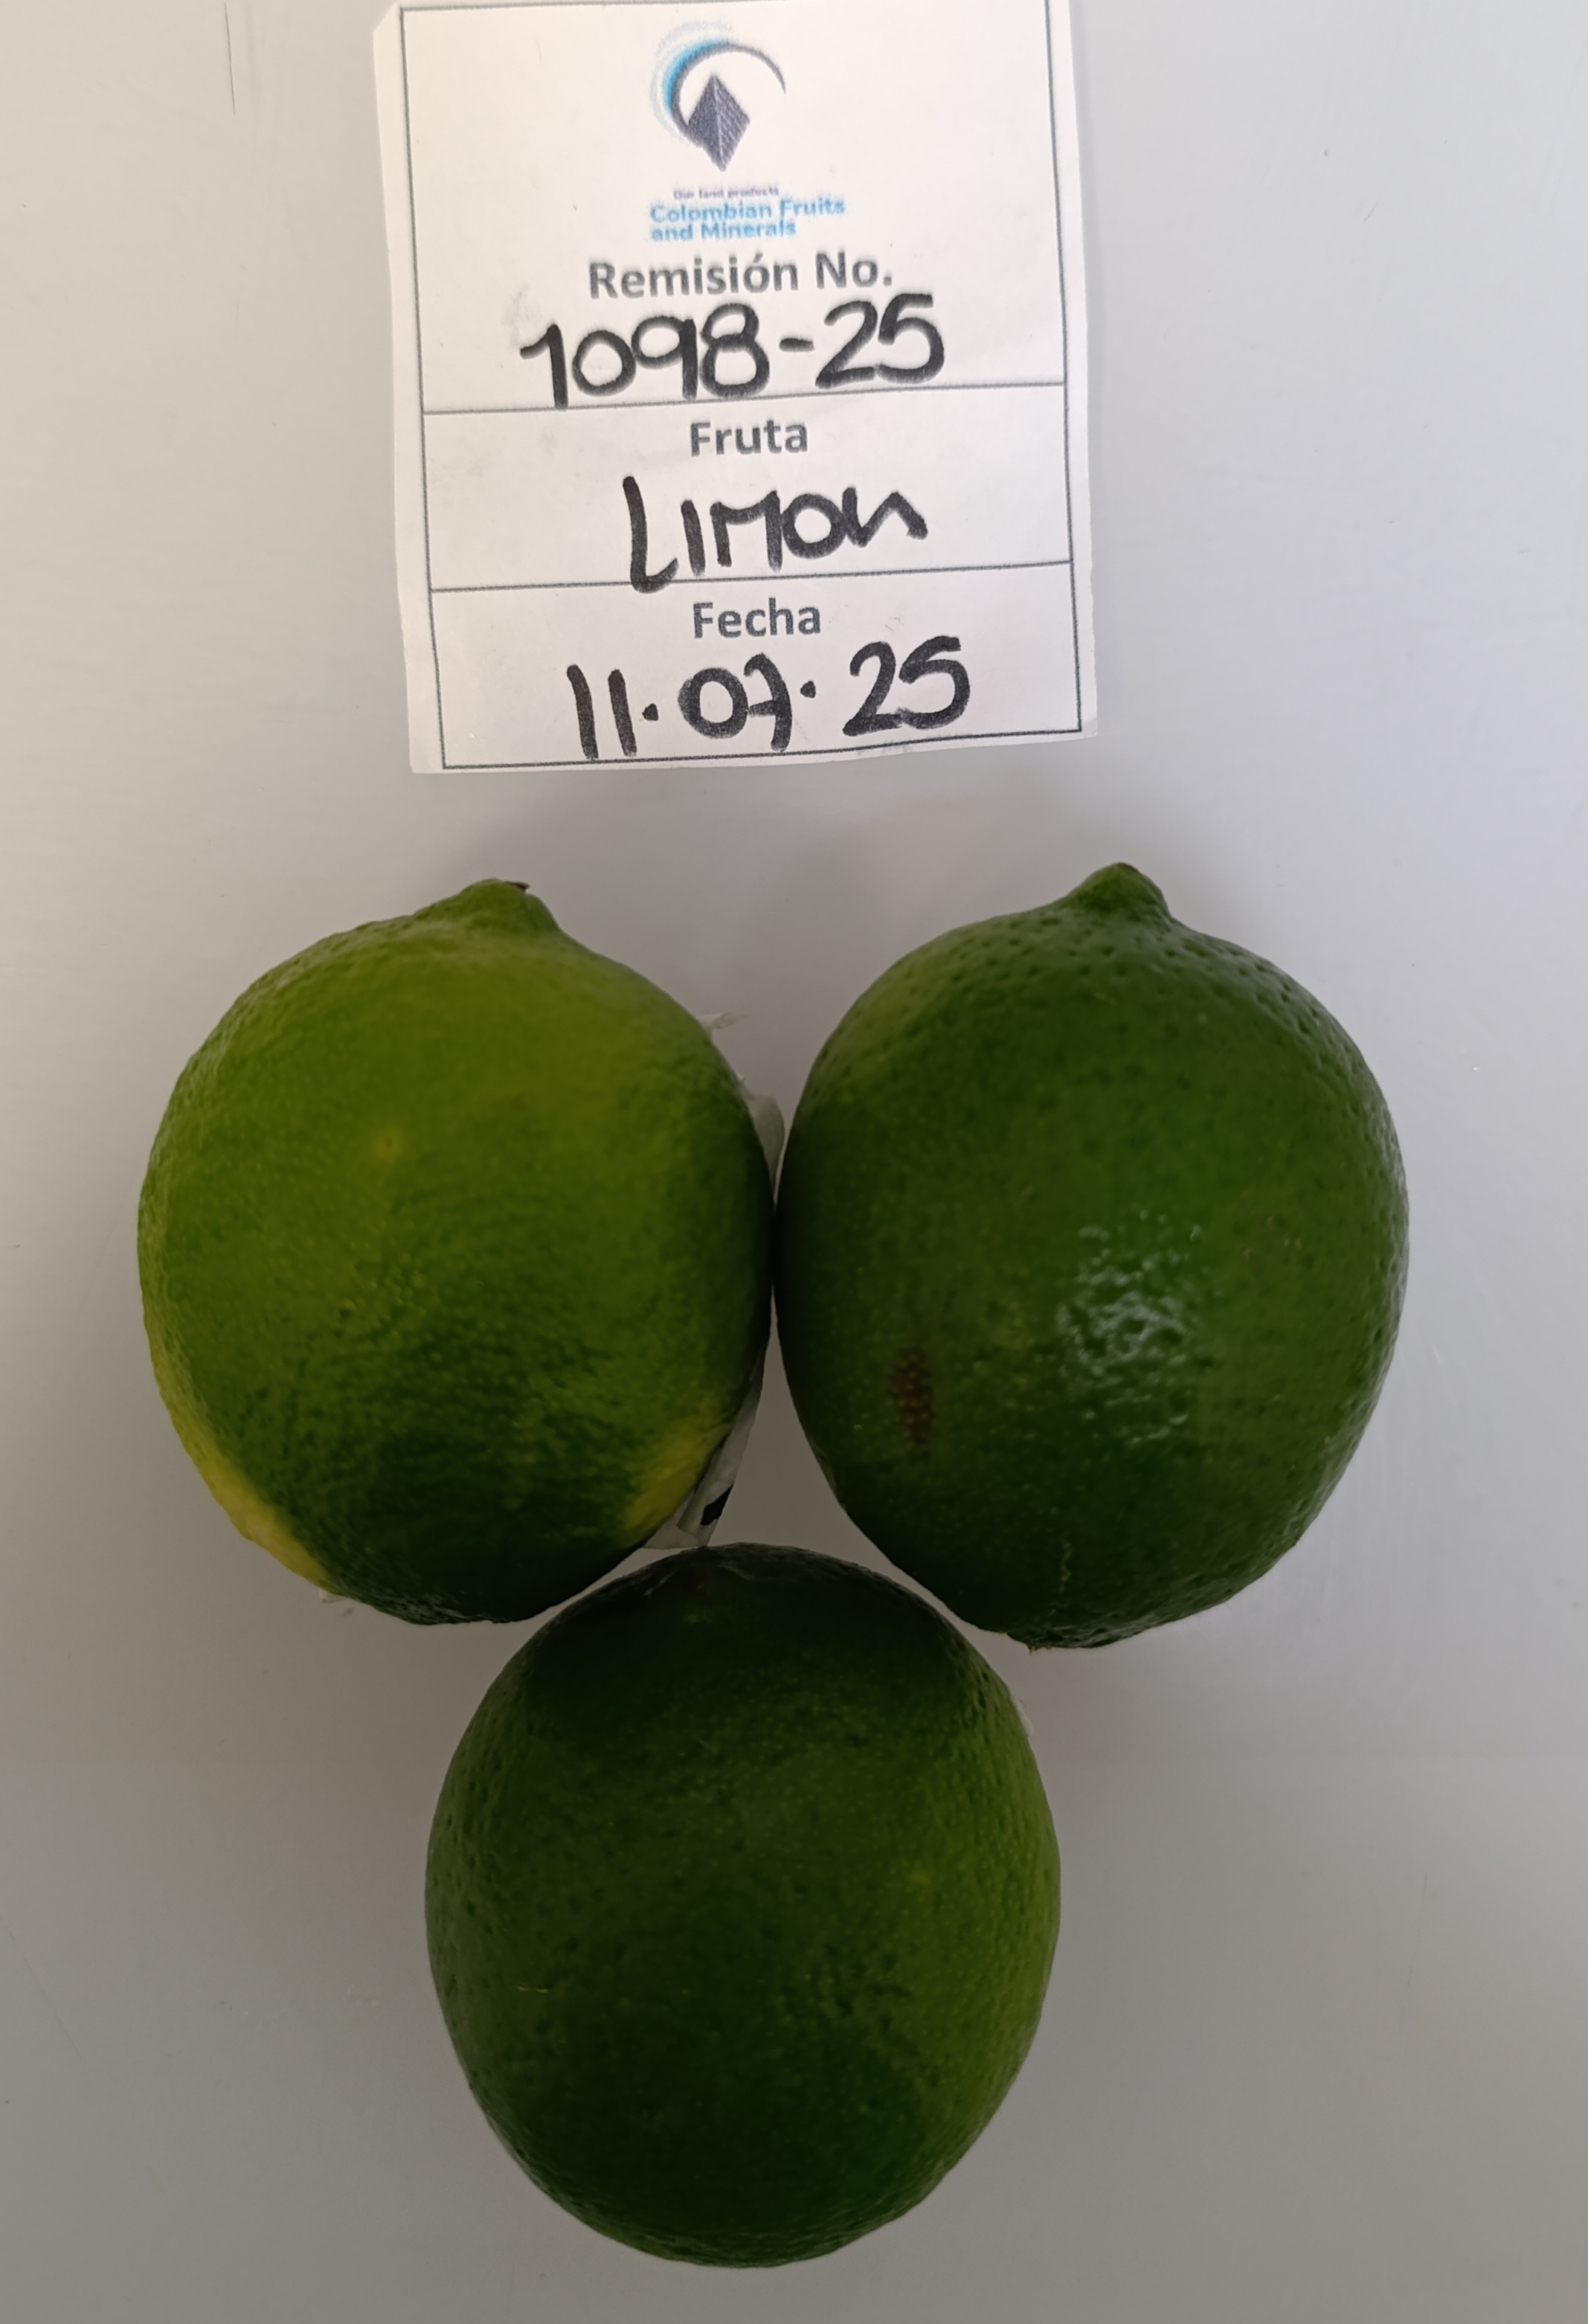 Our land products
Colombian Fruits
and Minerals
Remisión No.
1098-25
Fruta
LIMON
Fecha
11·07·25